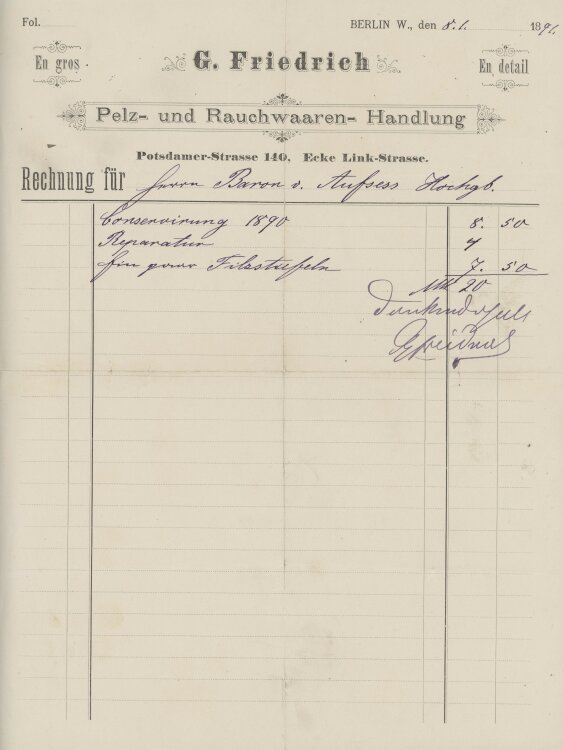 Fol.
BERLIN W., den 8. 1. 1891.
En gros
G. Friedrich
En detail
Pelz- und Rauchwaaren- Handlung
Potsdamer-Strasse 140, Ecke Link-Strasse.
Rechnung für Herrn Baron v. Aufsess Hochgb.
Conservirung 1890 8. 50
Reparatur 4
Ein paar Filzstiefeln 7. 50
Mk 20
Dankend erhalt
G Friedrich